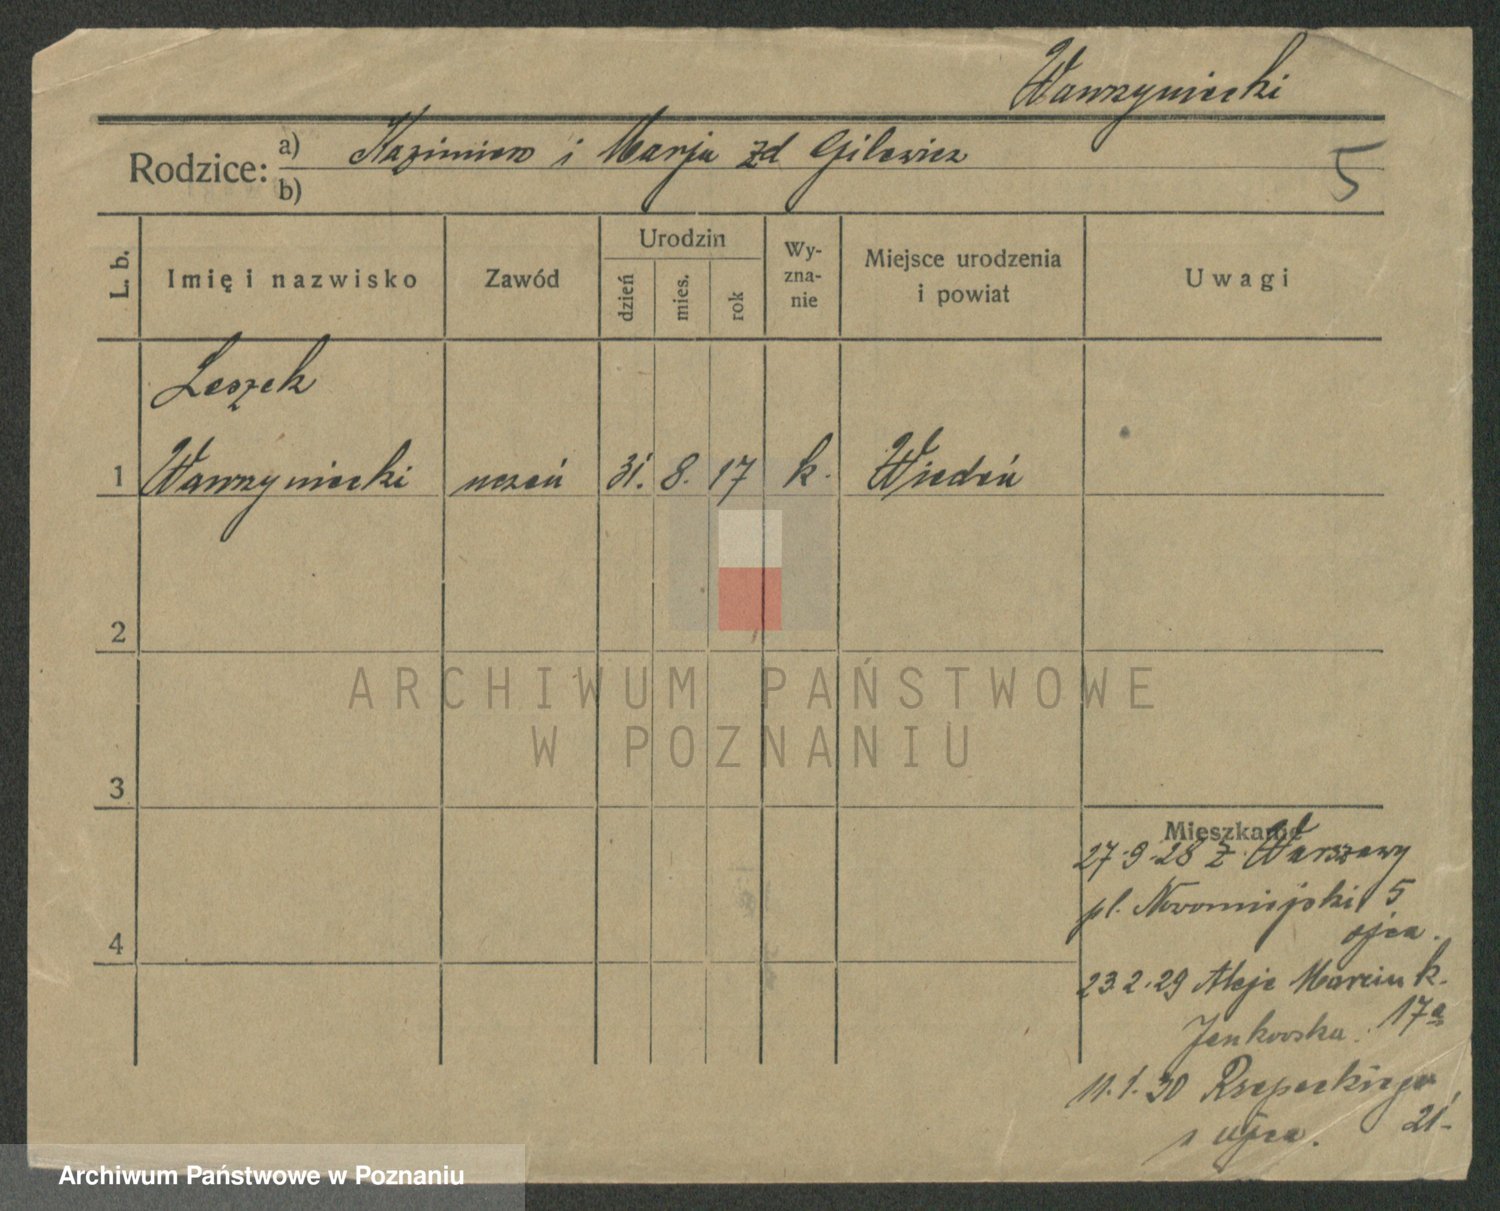 Wawrzyniecki
Rodzice: a) Kazimierz i Marja zd Gilewicz
b)
5
L. b.
Imię i nazwisko
Zawód
Urodzin
dzień
mies.
rok
Wy-
zna-
nie
Miejsce urodzenia
i powiat
Uwagi
Leszek
1 Wawrzyniecki uczeń 31. 8. 17 k. Wiedeń
2
3
4
Mieszkanie
27.9.28 z Warszawy
pl. Nowomiejski 5
ojca.
23.2.29 Aleje Marcink.
17a
Jankowska.
11.1.30 Rzepeckiego
21
u ojca.
ARCHIWUM PAŃSTWOWE
W POZNANIU
Archiwum Państwowe w Poznaniu